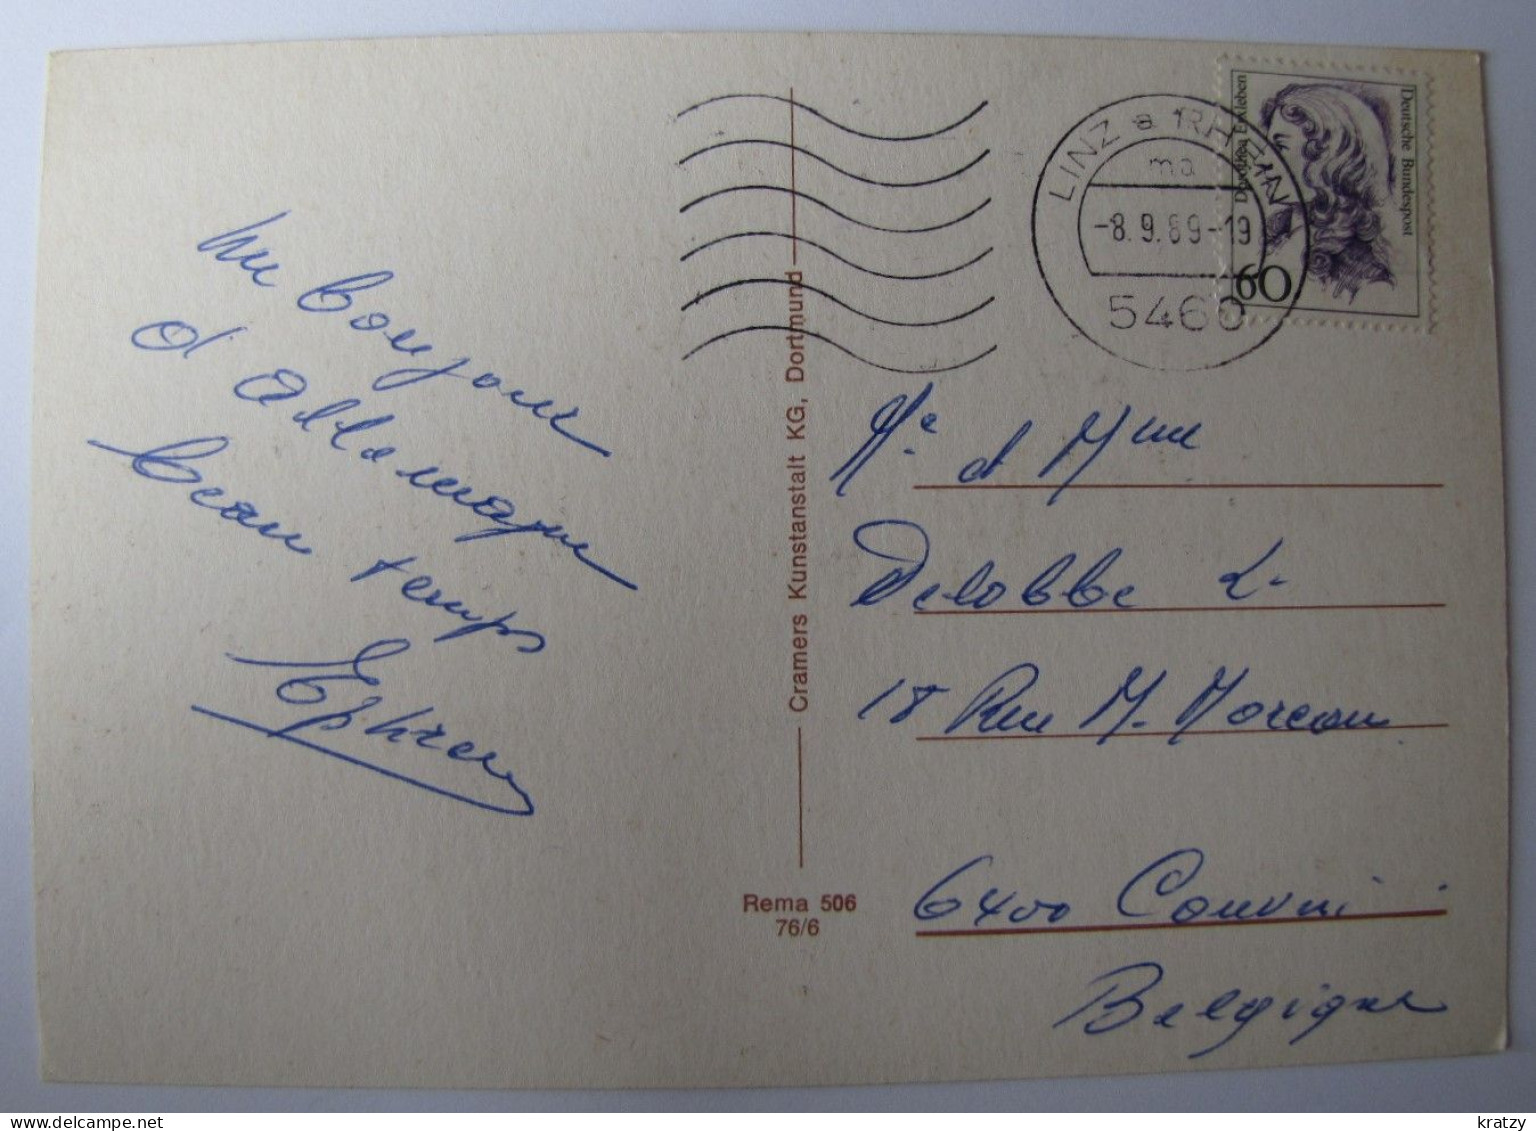 un bonjour
d'allemagne
beau temps
Ephrem
Cramers Kunstanstalt KG, Dortmund
Rema 506
76/6
LINZ a RHEIN
ma
-8.9.89-19
5460
Deutsche Bundespost
Dorothea Erxleben
60
Mr. et Mme
Delobbe L.
18 Rue M. Moreau
6400 Couvin
Belgique
kratzy